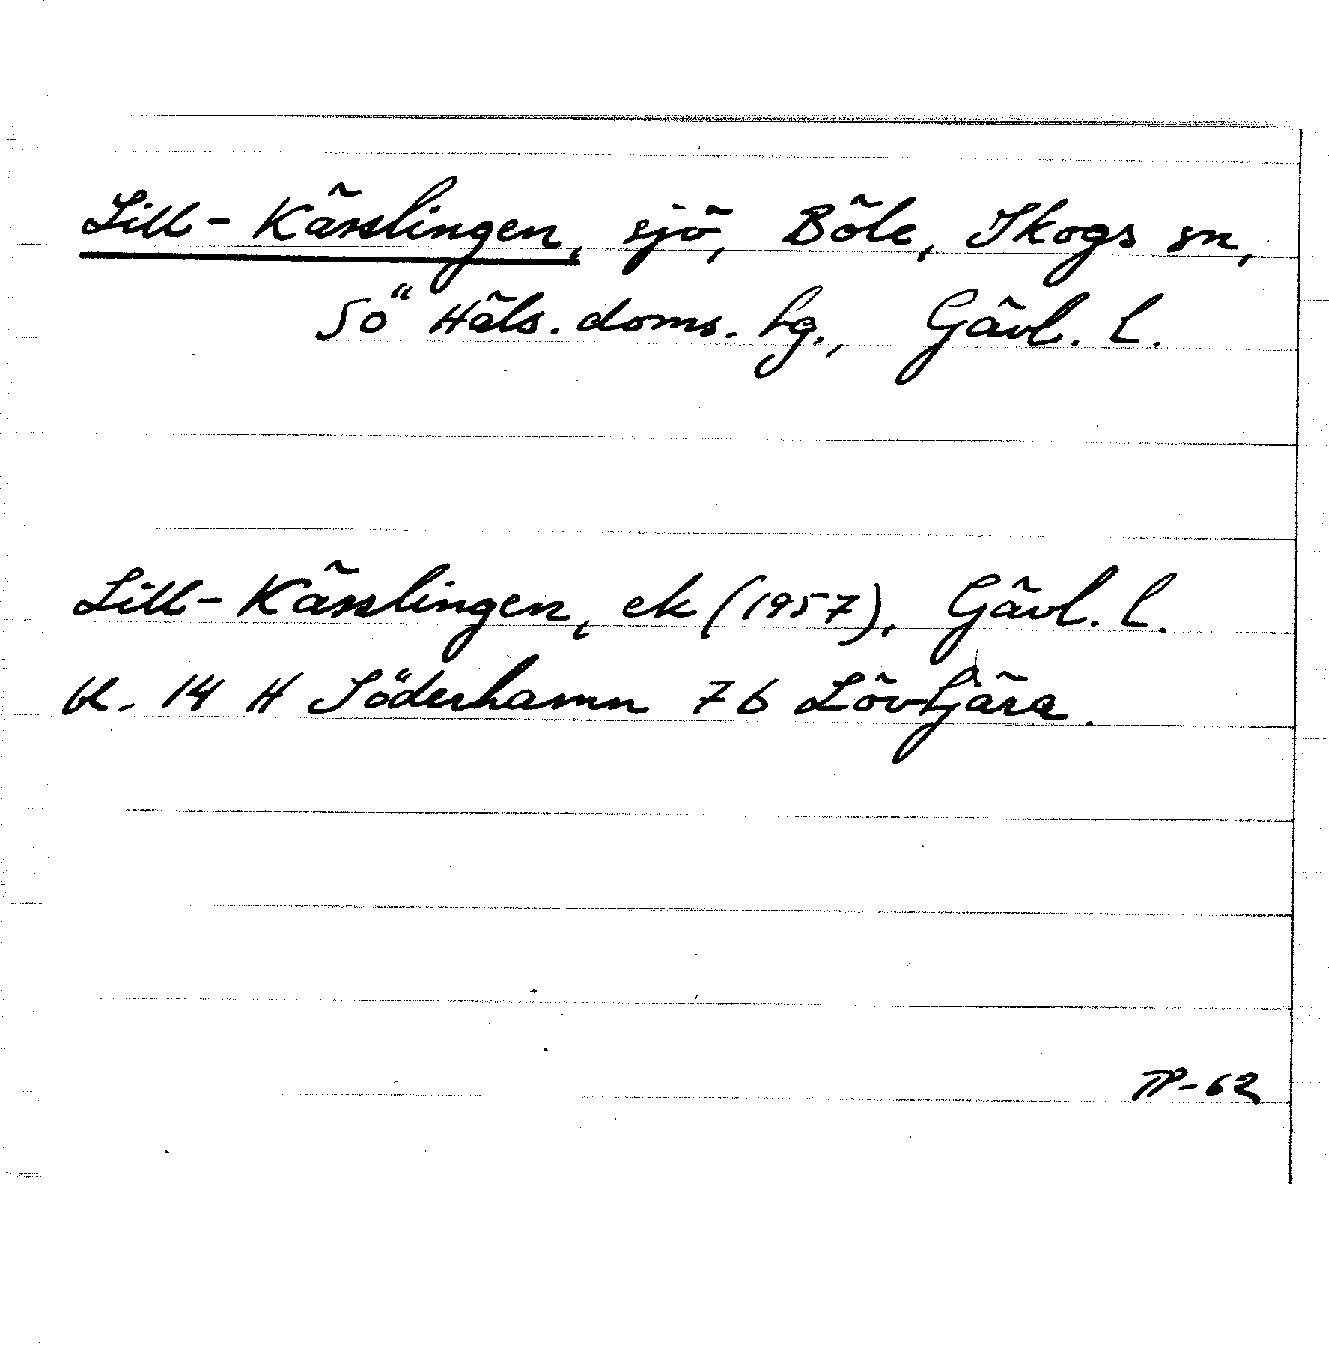 Lill-Kässlingen, sjö, Böle, Skogs sn,
Sö Häls. doms. hg., Gävl. l.
Lill-Kässlingen, ek (1957), Gävl. l.
bl. 14 H Söderhamn 7b Lövtjära.
TP-62